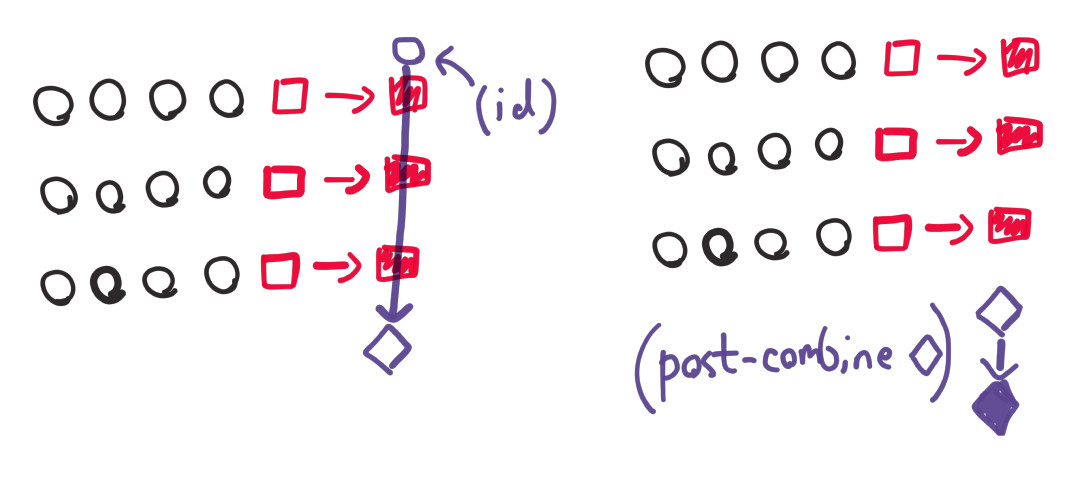 (id)
(post-combine ◇)